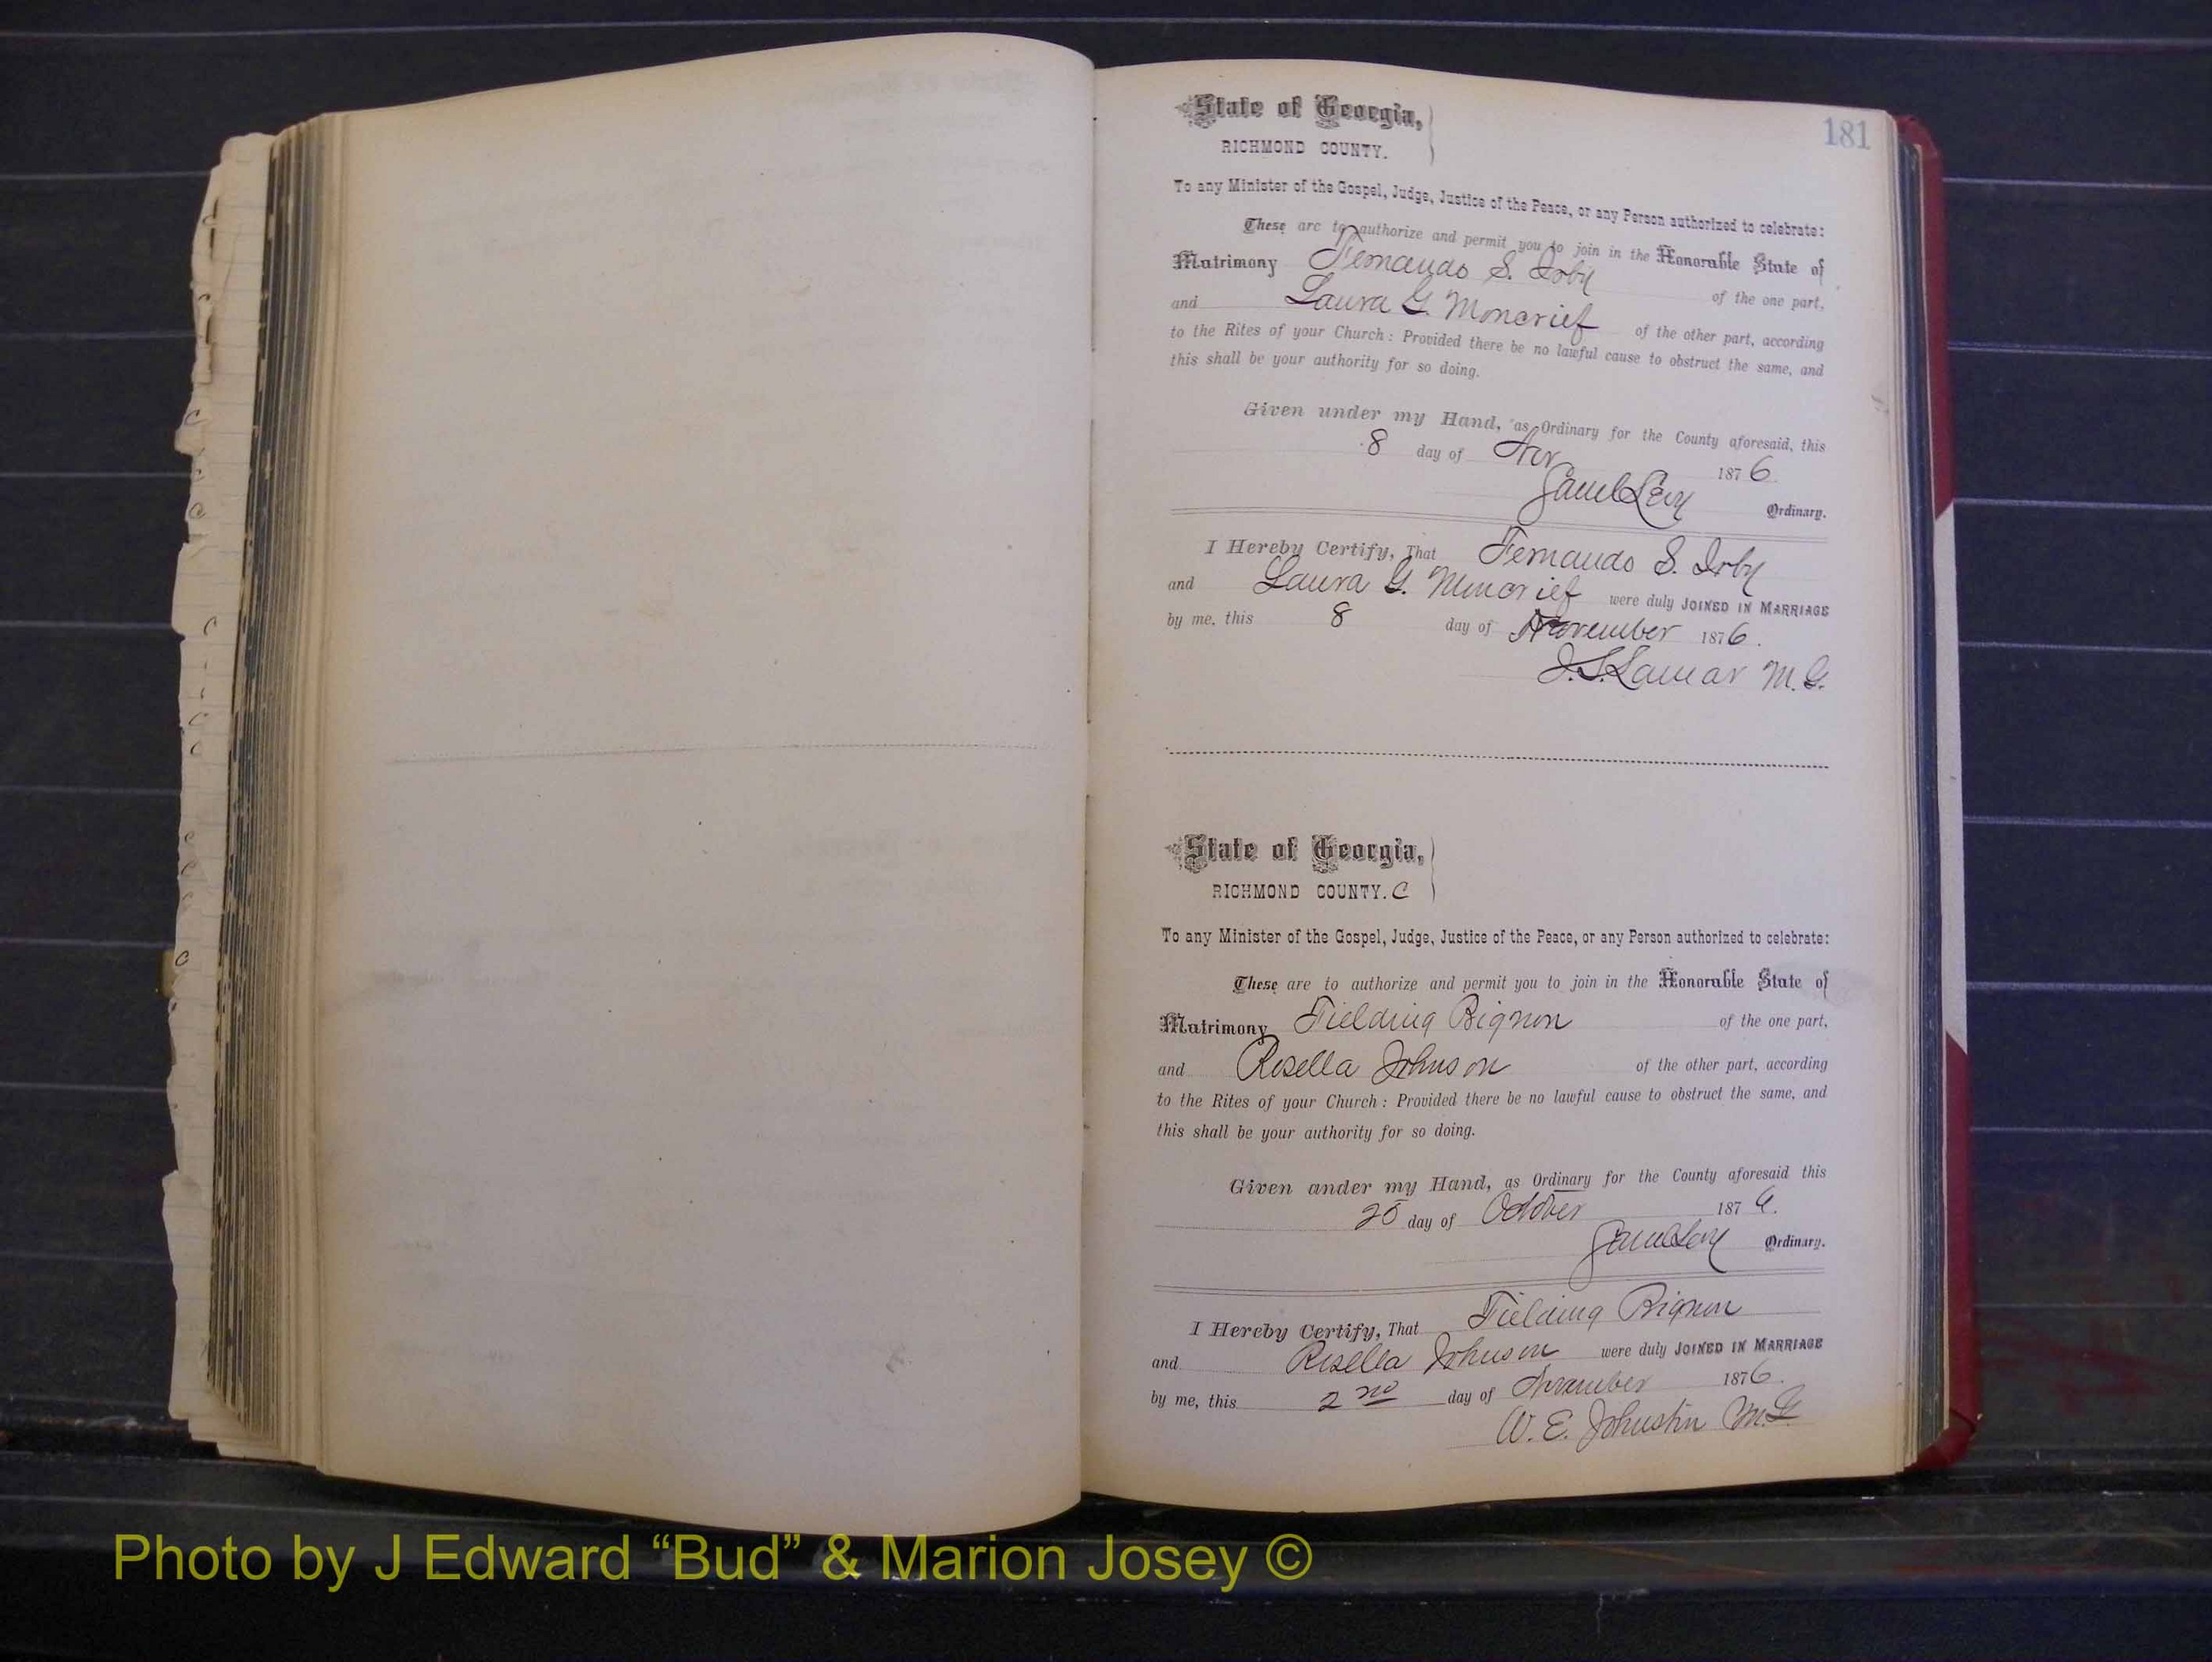 181
State of Georgia,
RICHMOND COUNTY.
To any Minister of the Gospel, Judge, Justice of the Peace, or any Person authorized to celebrate:
These are to authorize and permit you to join in the Honorable State of
Matrimony Fernando S. Irby of the one part,
and Laura G. Moncrief of the other part, according
to the Rites of your Church: Provided there be no lawful cause to obstruct the same, and
this shall be your authority for so doing.
Given under my Hand, as Ordinary for the County aforesaid, this
8 day of Nov 1876
Saml Levy Ordinary.
I Hereby Certify, That Fernando S. Irby
and Laura G. Moncrief were duly JOINED IN MARRIAGE
by me, this 8 day of November 1876.
J. S. Lamar M. G.
State of Georgia,
RICHMOND COUNTY. C
To any Minister of the Gospel, Judge, Justice of the Peace, or any Person authorized to celebrate:
These are to authorize and permit you to join in the Honorable State of
Matrimony Fielding Bignon of the one part,
and Rosella Johnson of the other part, according
to the Rites of your Church: Provided there be no lawful cause to obstruct the same, and
this shall be your authority for so doing.
Given under my Hand, as Ordinary for the County aforesaid this
25 day of October 1876.
Saml Levy Ordinary.
I Hereby Certify, That Fielding Bignon
and Rosella Johnson were duly JOINED IN MARRIAGE
by me, this 2nd day of November 1876.
W. E. Johnston M. G.
Photo by J Edward “Bud” & Marion Josey ©